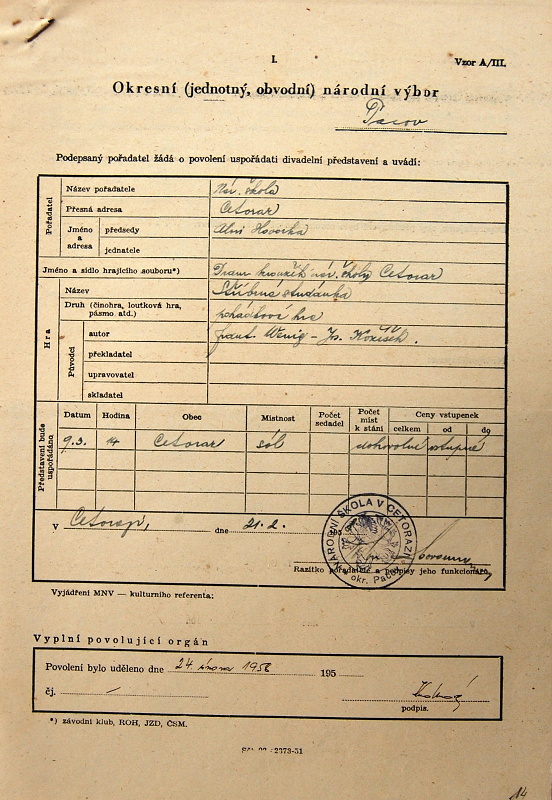 I.
Vzor A/III.
Okresní (jednotný, obvodní) národní výbor
Pacov
Podepsaný pořadatel žádá o povolení uspořádati divadelní představení a uvádí:
Pořadatel
Název pořadatele Nár. škola
Přesná adresa Cetoraz
Jméno a adresa
předsedy Alois
jednatele
Jméno a sídlo hrajícího souboru*) Dram. kroužek nár. školy Cetoraz
Hra
Název Stříbrná studánka
Druh (činohra, loutková hra, pásmo atd.) pohádková hra
Původci
autor Frant. Wenig - Js. Kozíšek.
překladatel
upravovatel
skladatel
Představení bude uspořádáno
Datum Hodina Obec Místnost Počet sedadel Počet míst k stání Ceny vstupenek
celkem od do
9.3. 14 Cetoraz sál dobrovolné vstupné
V Cetorazi, dne 21.2.
NÁRODNÍ ŠKOLA V CETORAZI
okr. Pacov
Razítko pořadatele a podpisy jeho funkcionářů.
Vyjádření MNV — kulturního referenta:
Vyplní povolující orgán
Povolení bylo uděleno dne 24. února 1956 195
čj. —
podpis.
*) závodní klub, ROH, JZD, ČSM.
14